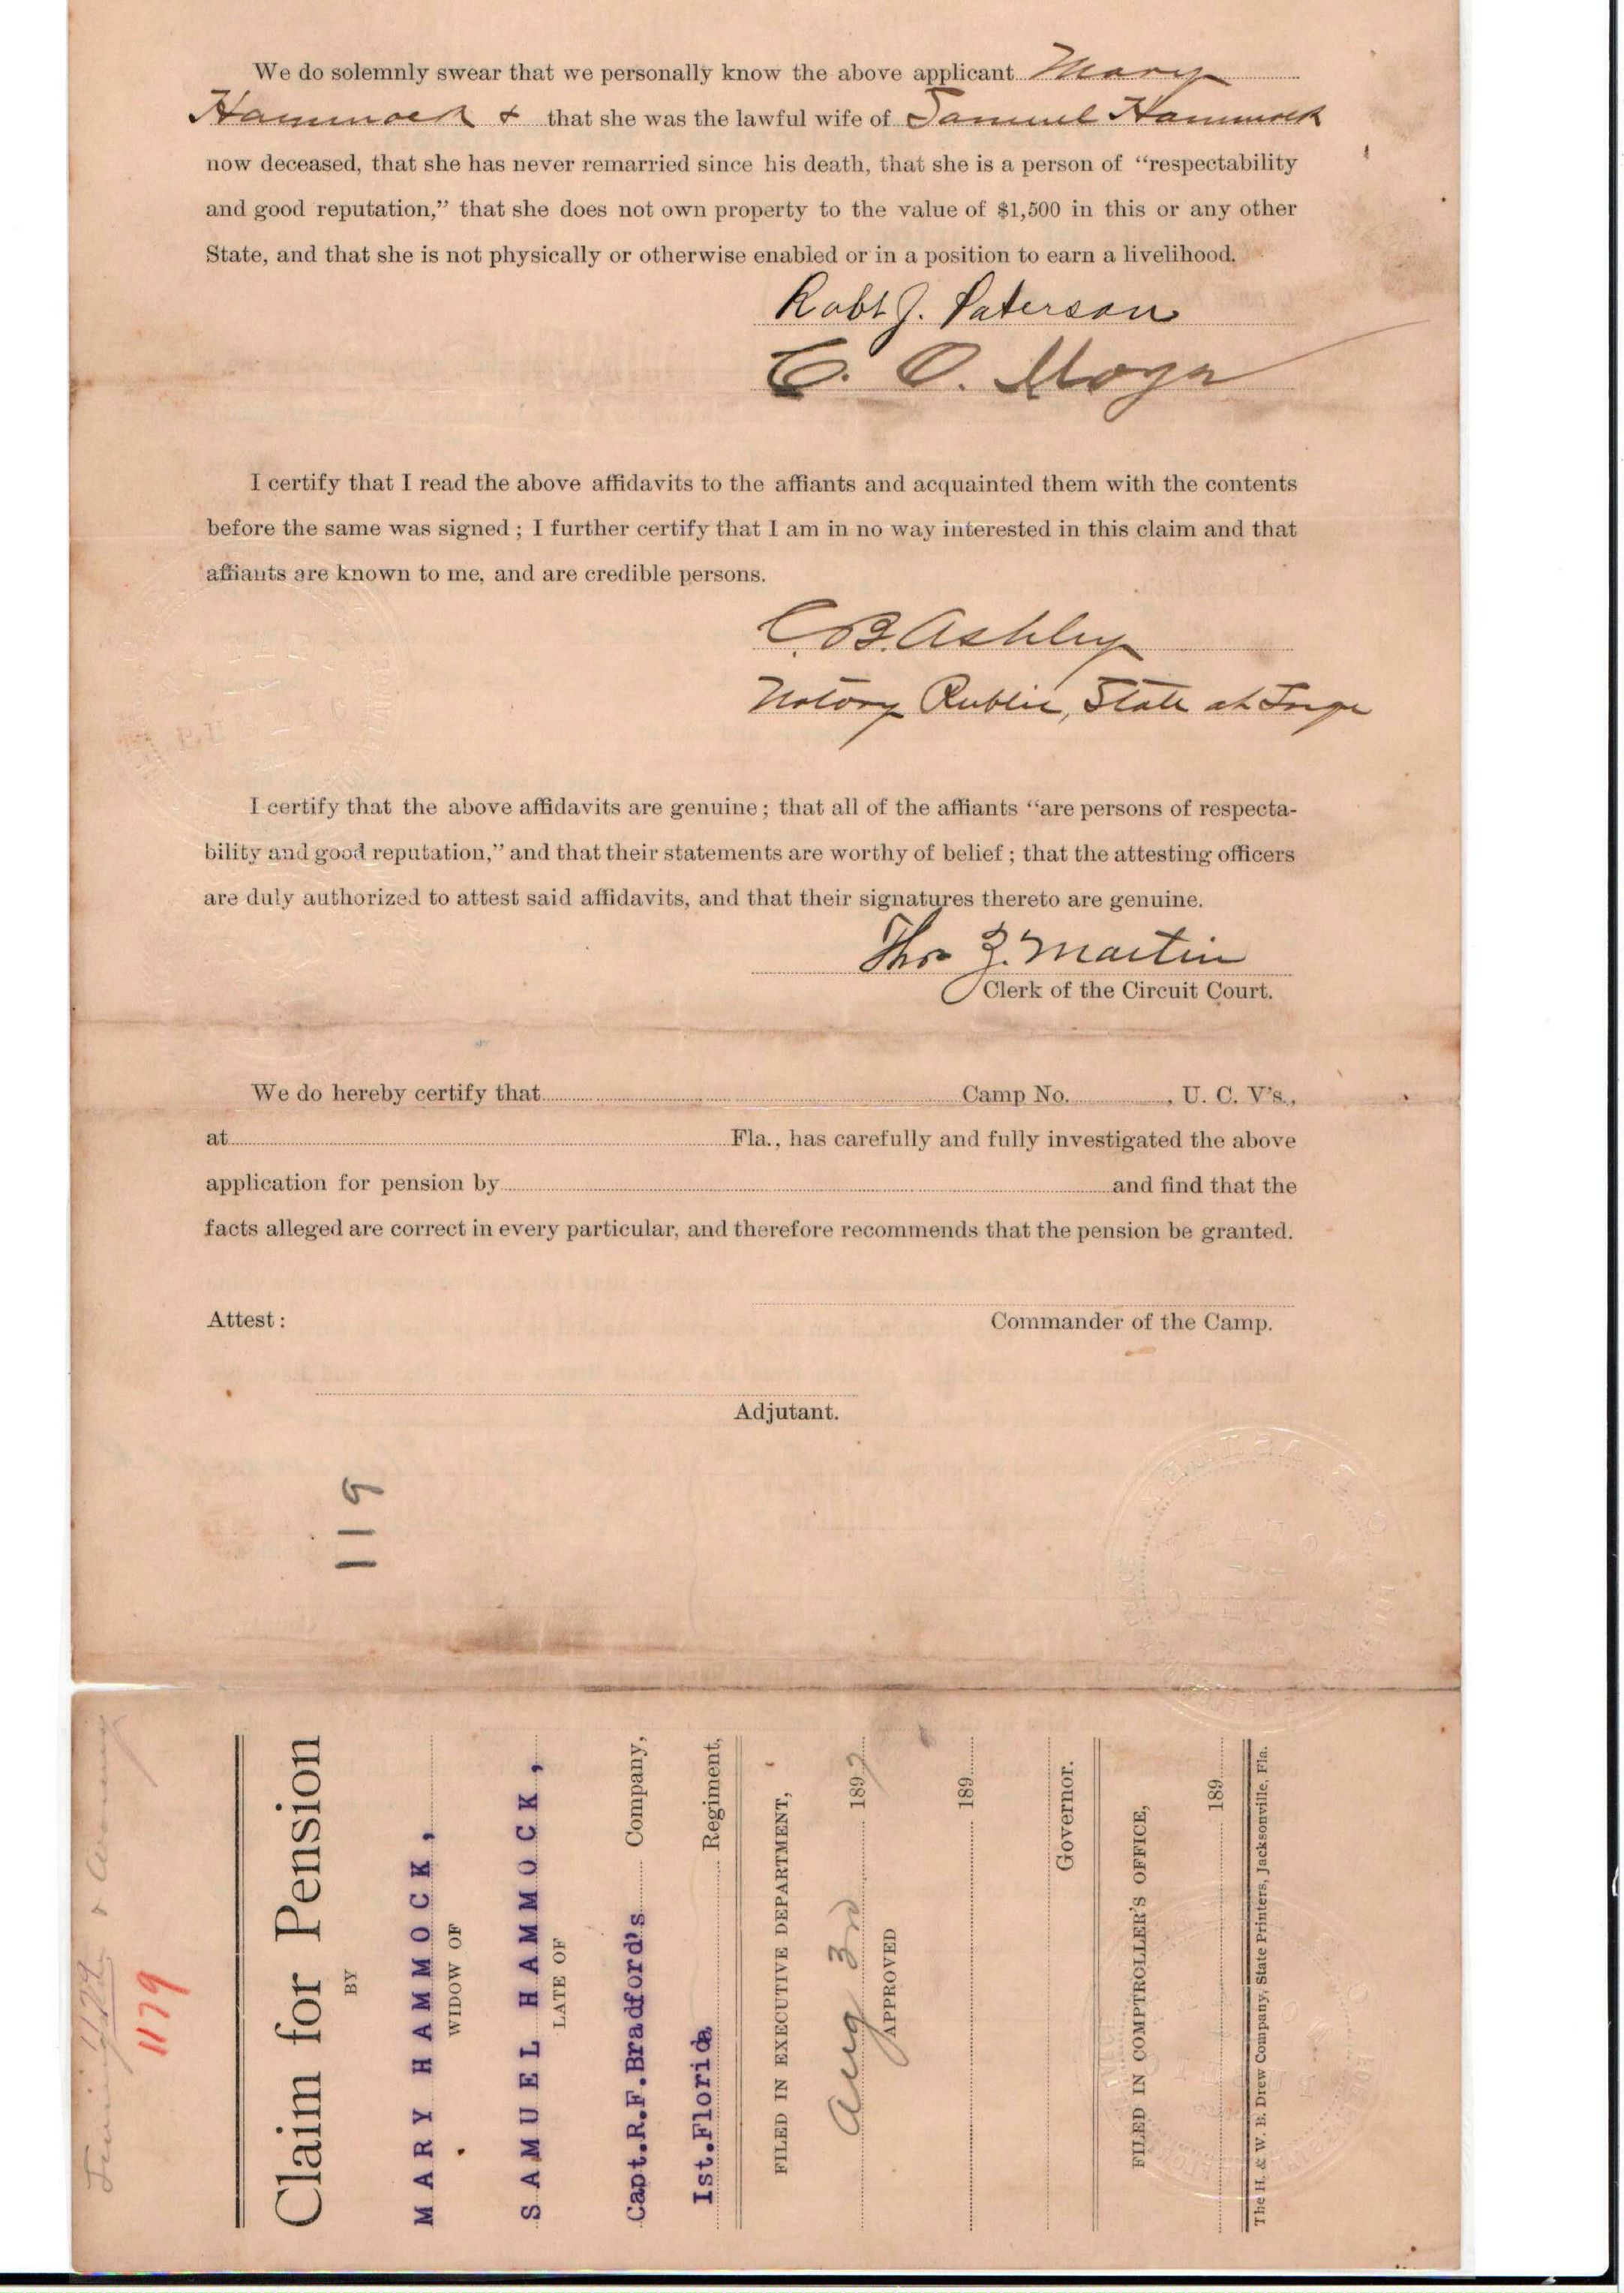 We do solemnly swear that we personally know the above applicant Mary
Hammock & that she was the lawful wife of Samuel Hammock
now deceased, that she has never remarried since his death, that she is a person of “respectability
and good reputation,” that she does not own property to the value of $1,500 in this or any other
State, and that she is not physically or otherwise enabled or in a position to earn a livelihood.
Robt J. Paterson
C. O.
I certify that I read the above affidavits to the affiants and acquainted them with the contents
before the same was signed; I further certify that I am in no way interested in this claim and that
affiants are known to me, and are credible persons.
C.B. Ashley
Notary Public, State at Large
I certify that the above affidavits are genuine; that all of the affiants “are persons of respecta-
bility and good reputation,” and that their statements are worthy of belief; that the attesting officers
are duly authorized to attest said affidavits, and that their signatures thereto are genuine.
Thos Martin
Clerk of the Circuit Court.
We do hereby certify that Camp No. , U. C. V's.,
at Fla., has carefully and fully investigated the above
application for pension by and find that the
facts alleged are correct in every particular, and therefore recommends that the pension be granted.
Attest: Commander of the Camp.
Adjutant.
119
1179
Claim for Pension
BY
MARY HAMMOCK,
WIDOW OF
SAMUEL HAMMOCK,
LATE OF
Capt.R.F.Bradford's Company,
Ist.Florida Regiment,
FILED IN EXECUTIVE DEPARTMENT,
Aug 3rd 1897
APPROVED
189
Governor.
FILED IN COMPTROLLER'S OFFICE,
189
The H. & W. B. Drew Company, State Printers, Jacksonville, Fla.